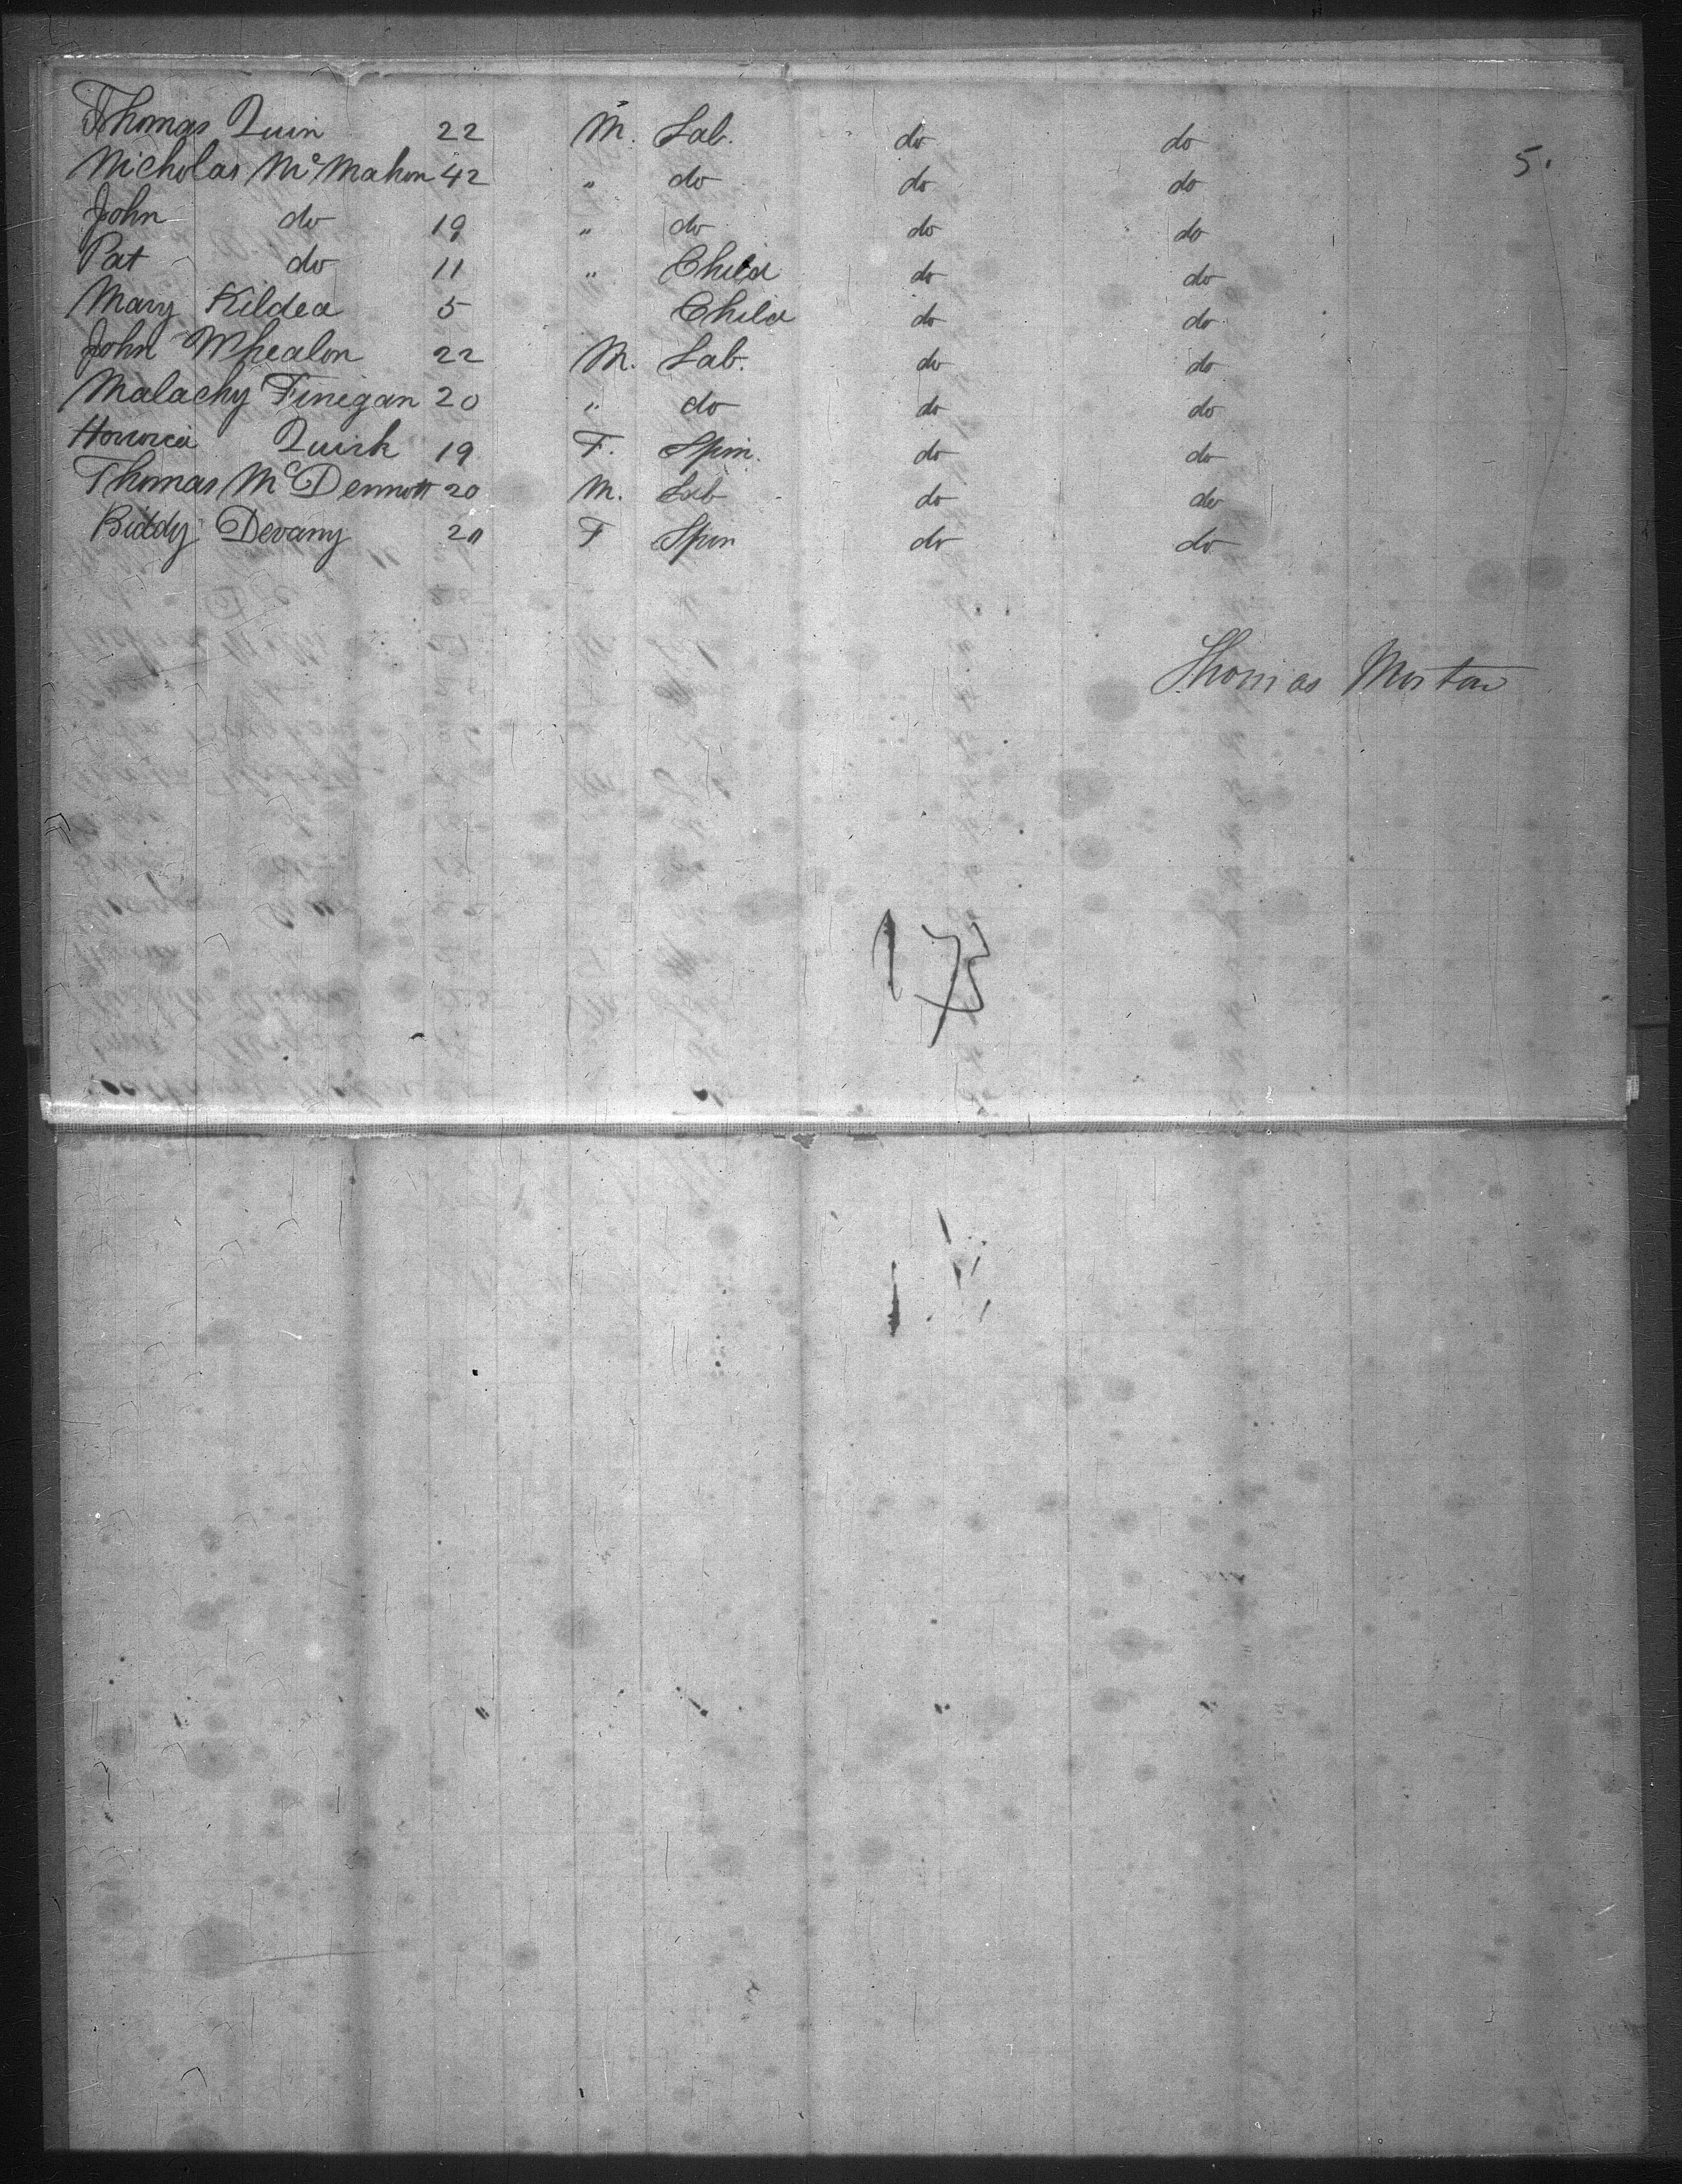 Thomas Quin 22 M. Lab. do do
5.
Nicholas McMahon 42 " do do do
John do 19 " do do do
Pat do 11 " Child do do
Mary Kildea 5 Child do do
John Whealon 22 M. Lab. do do
Malachy Finegan 20 " do do do
Honorea Quirk 19 F. Spin. do do
Thomas McDermott 20 M. Lab do do
Biddy Devany 20 F Spin do do
Thomas Morton
173